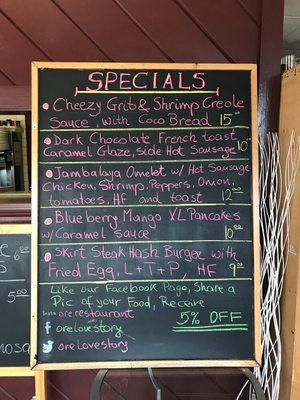 SPECIALS
Cheezy Grit & Shrimp Creole
Sauce, with Coco Bread 15⁰⁰
Dark Chocolate French toast
Caramel Glaze, side Hot Sausage 10⁰⁰
Jambalaya Omelet w/ Hot Sausage
Chicken, Shrimp, Peppers, Onion,
tomatoes, HF and toast 12⁰⁰
Blueberry Mango XL Pancakes
w/ Caramel Sauce 10⁰⁰
Skirt Steak Hash Burger with
Fried Egg, L+T+P, HF 9⁰⁰
Like our Facebook Page, Share a
Pic of your Food, Receive
5% OFF
ore restaurant
f orelovestory
orelovestory
6
5⁰⁰